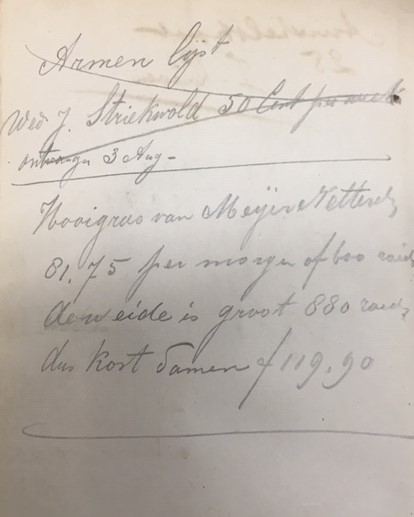 Armen lijst
Wed J. Striekwold 50 Cent per week
ontvangen 3 Aug -
Hooigras van Meijer
81,75 per morgen of 600 roed
de weide is groot 880 roed,
dus kost samen f 119,90